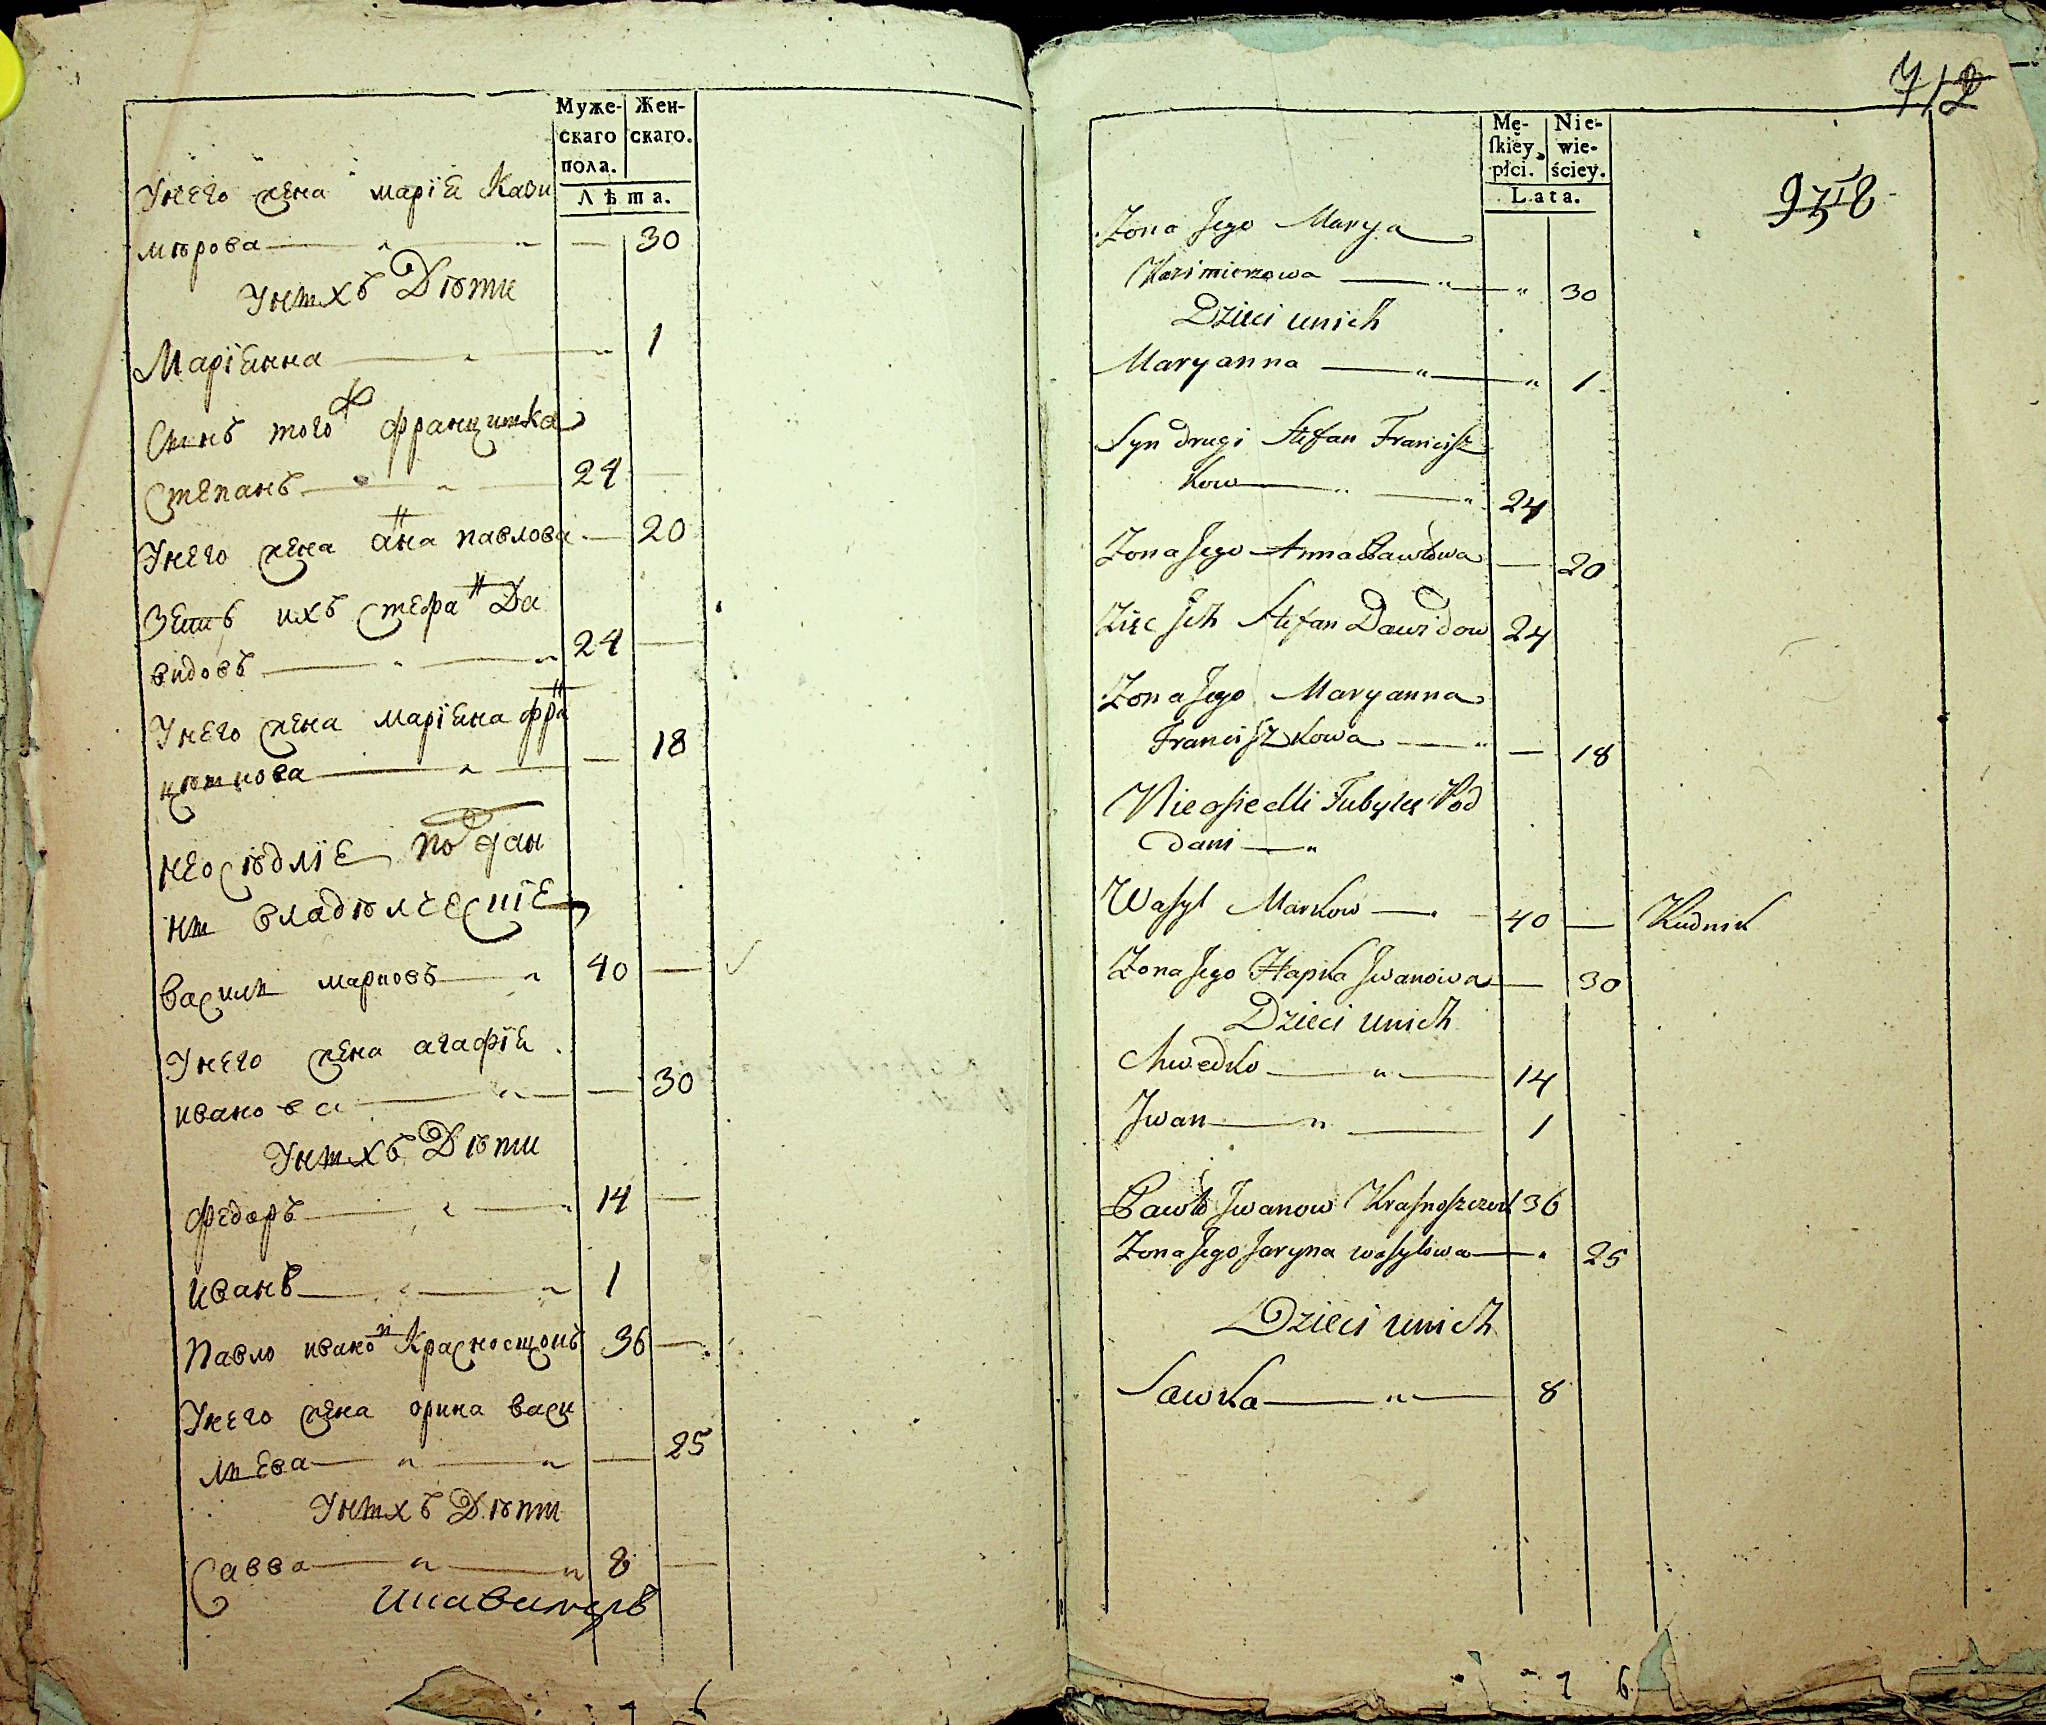 Муже-
скаго
пола.
Жен-
скаго.
Лѣта.
У него жена марїя Кази
мѣрова 30
У ныхъ Дѣти
Марїянна 1
Сынъ того ж францишка
Степанъ 24
У него жена анна павлова 20
Зять ихъ стефан Да
видовъ 24
У него жена марїяна фран
цѣшкова 18
неосѣдлїе подан
ны владѣлческїе
Васили марковъ 40
У него жена агафїя
иванова 30
У ныхъ Дѣти
федоръ 14
Иванъ 1
Павло иванов Красно 36
У него жена орина васи
лиева 25
У ныхъ Дѣти
Савва 8
Mę-
skiey
płci.
Nie-
wie-
ściey.
Lata.
712
Żona Jego Marya
Kazimierzowa 30
Dzieci unich
Maryanna 1
Syn drugi Stefan Francisz
kow 24
Żona Jego Anna Pawłowa 20
Zięc Jch Stefan Dawidow 24
Żona Jego Maryanna
Franciszkowa 18
Nieosiedli Tubylcy Pod
dani
Wasyl Markow 40 Rudnik
Żona Jego Hapka Jwanowa 30
Dzieci unich
Chwedko 14
Jwan 1
Pawło Jwanow 36
Żona Jego Jaryna wasylowa 25
Dzieci unich
Sawka 8
7 6